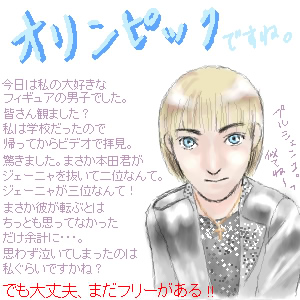 オリンピックですね。
今日は私の大好きな
フィギュアの男子でした。
皆さん観ました?
私は学校だったので
帰ってからビデオで拝見。
驚きました。まさか本田君が
ジェーニャを抜いて二位なんて。
ジェーニャが三位なんて!
まさか彼が転ぶとは
ちっとも思ってなかった
だけ余計に・・・。
思わず泣いてしまったのは
私ぐらいですかね?
でも大丈夫、まだフリーがある!!
プルシェンコ。
似てね~